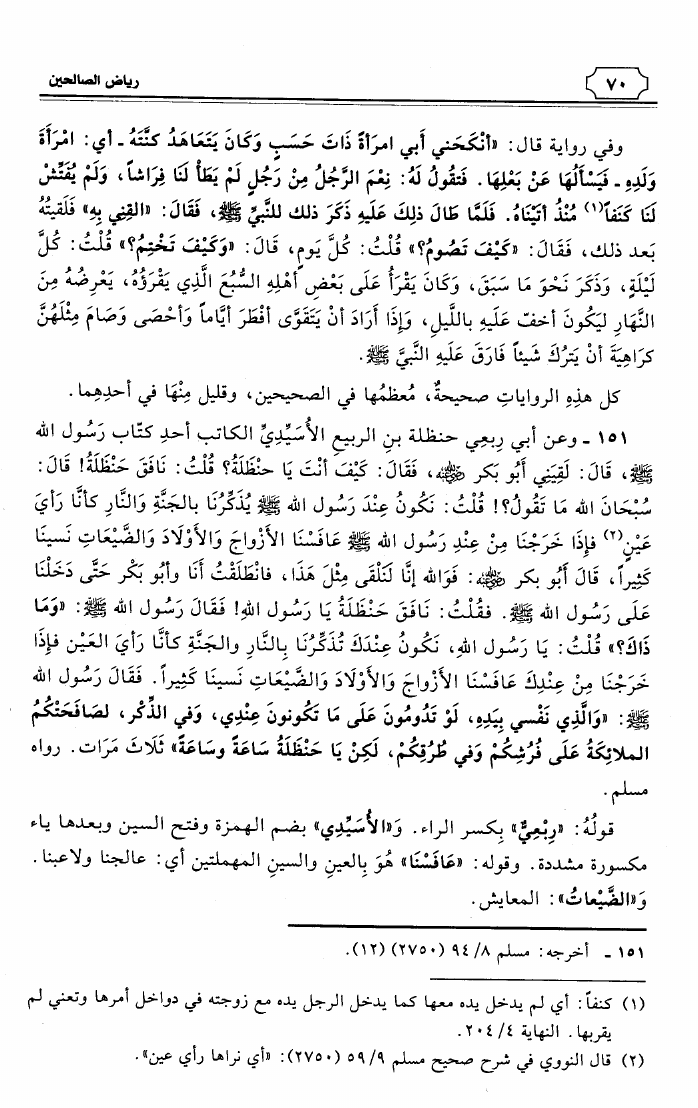 ٧٠ رياض الصالحين
وفي رواية قال: «أَنْكَحَني أَبي امرَأةً ذَاتَ حَسَبٍ وَكَانَ يَتَعَاهَدُ كنَّتَهُ - أي: امْرَأَةَ
وَلَدِهِ - فَيَسْأَلُهَا عَنْ بَعْلِهَا. فَتَقُولُ لَهُ: نِعْمَ الرَّجُلُ مِنْ رَجُلٍ لَمْ يَطَأْ لَنَا فِرَاشاً، وَلَمْ يُفَتِّشْ
لَنَا كَنَفاً(١) مُنْذُ أَتَيْنَاهُ. فَلَمَّا طَالَ ذلِكَ عَلَيهِ ذَكَرَ ذلك للنَّبيِّ ﷺ، فَقَالَ: «القِنِي بِهِ» فَلَقيتُهُ
بَعد ذلك، فَقَالَ: «كَيْفَ تَصُومُ؟» قُلْتُ: كُلَّ يَومٍ، قَالَ: «وَكَيْفَ تَخْتِمُ؟» قُلْتُ: كُلَّ
لَيْلَةٍ، وَذَكَرَ نَحْوَ مَا سَبَقَ، وَكَانَ يَقْرَأُ عَلَى بَعْضِ أَهْلِهِ السُّبُعَ الَّذِي يَقْرَؤُهُ، يَعْرِضُهُ مِنَ
النَّهَارِ ليَكُونَ أخفّ عَلَيهِ باللَّيلِ، وَإِذَا أَرَادَ أَنْ يَتَقَوَّى أَفْطَرَ أَيَّاماً وَأَحْصَى وَصَامَ مِثْلَهُنَّ
كرَاهِيَةَ أَنْ يَترُكَ شَيئاً فَارَقَ عَلَيهِ النَّبيَّ ﷺ.
كل هذِهِ الرواياتِ صحيحةٌ، مُعظمُها في الصحيحين، وقليل مِنْهَا في أحدِهِما.
١٥١ - وعن أبي رِبعِي حنظلة بنِ الربيعِ الأُسَيِّدِيِّ الكاتب أحدِ كتّاب رَسُول الله
ﷺ، قَالَ: لَقِيَنِي أَبُو بَكر رضي الله عنه، فَقَالَ: كَيْفَ أَنْتَ يَا حنْظَلَةُ؟ قُلْتُ: نَافَقَ حَنْظَلَةُ! قَالَ:
سُبْحَانَ الله مَا تَقُولُ؟! قُلْتُ: نَكُونُ عِنْدَ رَسُول الله ﷺ يُذَكِّرُنَا بالجَنَّةِ وَالنَّارِ كأنَّا رَأيَ
عَيْنٍ(٢) فإِذَا خَرَجْنَا مِنْ عِنْدِ رَسُول الله ﷺ عَافَسْنَا الأَزْوَاجَ وَالأَوْلَادَ وَالضَّيْعَاتِ نَسينَا
كَثِيراً، قَالَ أَبُو بكر رضي الله عنه: فَوَالله إِنَّا لَنَلْقَى مِثْلَ هَذَا، فانْطَلَقْتُ أَنَا وأَبُو بَكْر حَتَّى دَخَلْنَا
عَلَى رَسُول الله ﷺ. فقُلْتُ: نَافَقَ حَنْظَلَةُ يَا رَسُول اللهِ! فَقَالَ رَسُول الله ﷺ: «وَمَا
ذَاكَ؟» قُلْتُ: يَا رَسُول اللهِ، نَكُونُ عِنْدَكَ تُذَكِّرُنَا بِالنَّارِ والجَنَّةِ كأنَّا رَأيَ العَيْن فإِذَا
خَرَجْنَا مِنْ عِنْدِكَ عَافَسْنَا الأَزْوَاجَ وَالأَوْلَادَ وَالضَّيْعَاتِ نَسينَا كَثِيراً. فَقَالَ رَسُول الله
ﷺ: «وَالَّذِي نَفْسي بِيَدِهِ، لَوْ تَدُومُونَ عَلَى مَا تَكُونونَ عِنْدِي، وَفي الذِّكْر، لصَافَحَتْكُمُ
الملائِكَةُ عَلَى فُرُشِكُمْ وَفي طُرُقِكُمْ، لَكِنْ يَا حَنْظَلَةُ سَاعَةً وسَاعَةً» ثَلَاثَ مَرَات. رواه
مسلم.
قولُهُ: «رِبْعِيٌّ» بِكسر الراء. وَ«الأُسَيِّدِي» بضم الهمزة وفتح السين وبعدها ياء
مكسورة مشددة. وقوله: «عَافَسْنَا» هُوَ بِالعينِ والسينِ المهملتين أي: عالجنا ولاعبنا.
وَ«الضَّيْعاتُ»: المعايش.
١٥١ - أخرجه: مسلم ٩٤/٨ (٢٧٥٠) (١٢).
(١) كنفاً: أي لم يدخل يده معها كما يدخل الرجل يده مع زوجته في دواخل أمرها وتعني لم
يقربها. النهاية ٢٠٤/٤.
(٢) قال النووي في شرح صحيح مسلم ٥٩/٩ (٢٧٥٠): «أي نراها رأي عين».